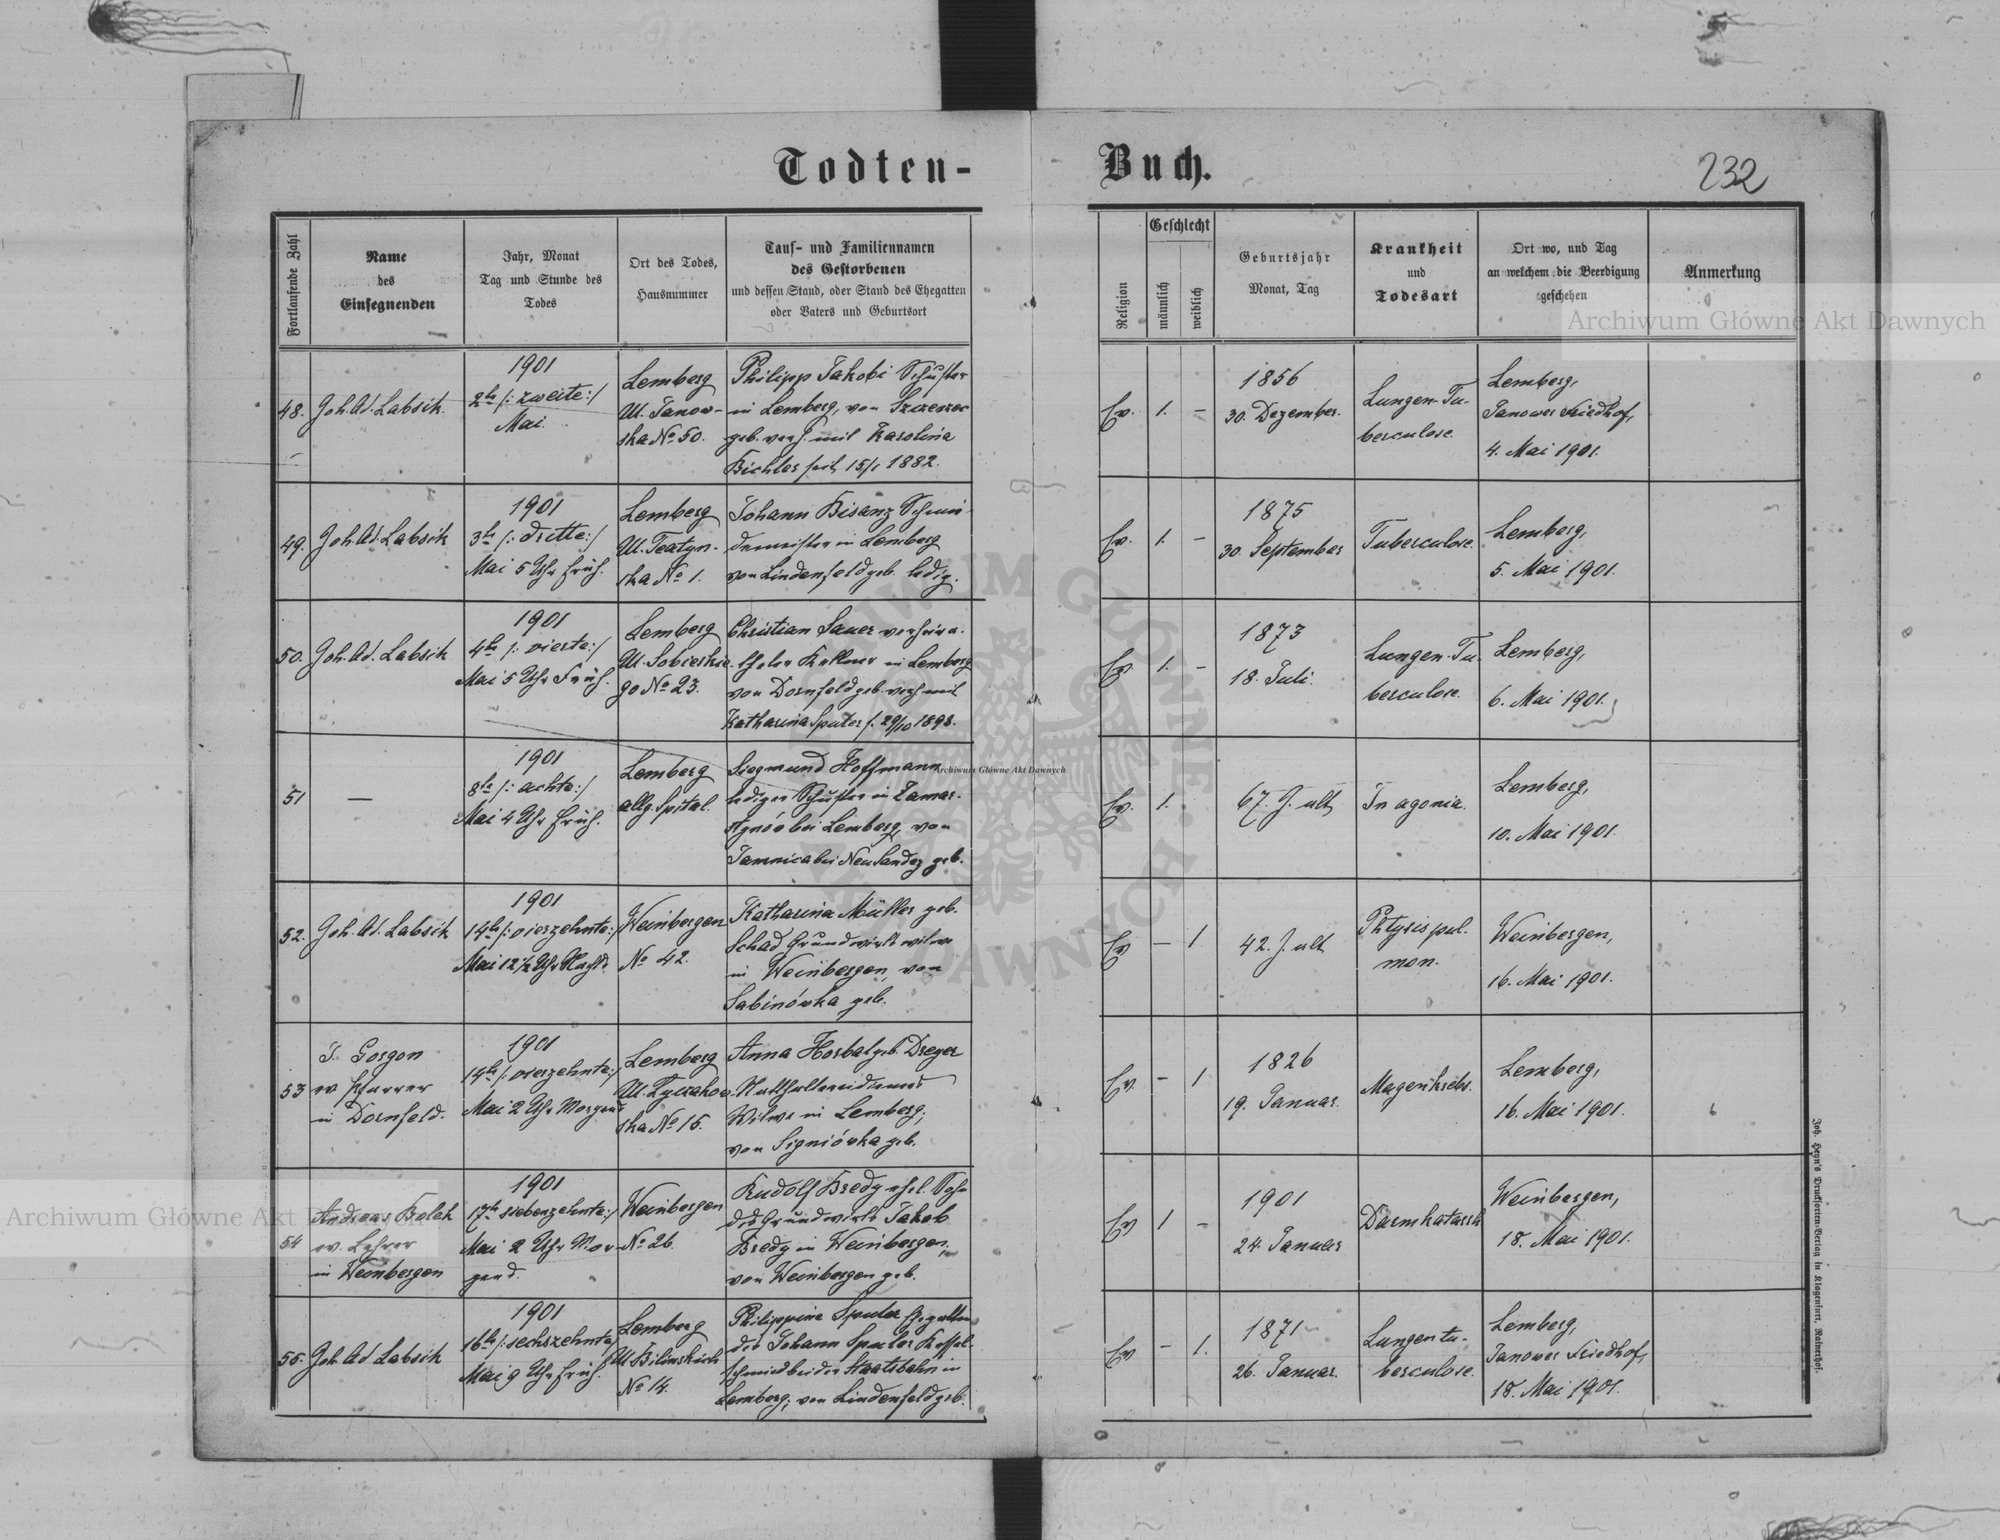 Todten-Buch.
232
Fortlaufende Zahl
Name
des
Einsegnenden
Jahr, Monat
Tag und Stunde des
Todes
Ort des Todes,
Hausnummer
Tauf- und Familiennamen
des Gestorbenen
und dessen Stand, oder Stand des Ehegatten
oder Vaters und Geburtsort
Religion
Geschlecht
männlich
weiblich
Geburtsjahr
Monat, Tag
Krankheit
und
Todesart
Ort wo, und Tag
an welchem die Beerdigung
geschehen
Anmerkung
48.
Joh. Ad. Labsik.
1901
2te /: zweite :/
Mai.
Lemberg
Ul. Janow-
ska No 50.
Philipp Jakobi Schuster
in Lemberg, von Szczerzec
geb. verh. mit Karolina
Bichler seit 15/1 1882.
Ev.
1.
-
1856
30. Dezember.
Lungen-Tu-
berculose.
Lemberg,
Janower Friedhof,
4. Mai 1901.
49.
Joh. Ad. Labsik
1901
3te /: dritte :/
Mai 5 Uhr früh.
Lemberg
Ul. Teatyn-
ska No 1.
Johann Bisanz Schmi-
demeister in Lemberg
von Lindenfeld geb. ledig.
Ev.
1.
-
1875
30. September
Tuberculose.
Lemberg,
5. Mai 1901.
50.
Joh. Ad. Labsik
1901
4te /: vierte :/
Mai 5 Uhr Früh.
Lemberg
Ul. Sobieskie-
go No 23.
Christian Sauer verheira-
theter Kellner in Lemberg
von Dornfeld geb. verh. mit
Katharina Sputer s. 29/10 1898.
Ev.
1.
-
1873
18. Juli.
Lungen-Tu-
berculose.
Lemberg,
6. Mai 1901.
51
—
1901
8te /: achte :/
Mai 4 Uhr früh.
Lemberg
allg. Spital.
Siegmund Hoffmann
lediger Schuster in Zamar-
stynów bei Lemberg, von
Jamnica bei Neu Sandez geb.
Ev.
1.
67. J. alt
In agonia.
Lemberg,
10. Mai 1901.
52.
Joh. Ad. Labsik
1901
14te /: vierzehnte :/
Mai 12 1/2 Uhr Nachts.
Weinbergen
No 42.
Katharina Müller geb.
Schad Grundwirts witwe
in Weinbergen, von
Sabinówka geb.
Ev
-
1
42. J. alt
Phtysis pul.
mon.
Weinbergen,
16. Mai 1901.
53
J. Gorgon
ev. Pfarrer
in Dornfeld.
1901
14te /: vierzehnte :/
Mai 2 Uhr Morgens
Lemberg
Ul. Łyczakow-
ska No 15.
Anna Horbal geb. Dreyer
Statthaltereidieners
Witwe in Lemberg,
von Signiówka geb.
Ev
-
1
1826
19. Januar.
Magenkrebs.
Lemberg,
16. Mai 1901.
54
Andreas Bolek
ev. Lehrer
in Weinbergen
1901
17te siebenzehnte :/
Mai 2 Uhr Mor-
gens.
Weinbergen
No 26.
Rudolf Bredy ehel. Sohn
des Grundwirts Jakob
Bredy in Weinbergen,
von Weinbergen geb.
Ev
1
-
1901
24. Januar
Darmkatarrh
Weinbergen,
18. Mai 1901.
55.
Joh. Ad Labsik
1901
16te /: sechszehnte :/
Mai 9 Uhr früh.
Lemberg
Ul. Bilinskich
No 14.
Philippine Sputer Ehegattin
des Johann Sputer Kessel-
schmied bei der Staatsbahn in
Lemberg, von Lindenfeld geb.
Ev
-
1.
1871
26. Januar.
Lungentu-
berculose.
Lemberg,
Janower Friedhof,
18. Mai 1901.
Joh. Heyn's Drucksorten-Verlag in Klagenfurt, Rainerhof.
Archiwum Główne Akt Dawnych
Archiwum Główne Akt Dawnych
Archiwum Główne Akt D